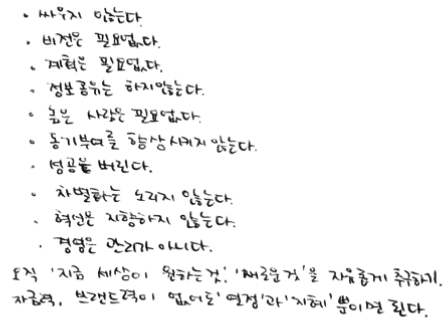 · 싸우지 않는다.
· 비전은 필요없다.
· 계획은 필요없다.
· 정보공유는 하지않는다.
· 높은 사람은 필요없다.
· 동기부여를 향상시키지 않는다.
· 성공을 버린다.
· 차별화는 노리지 않는다.
· 혁신은 지향하지 않는다.
· 경영은 관리가 아니다.
오직 '지금 세상이 원하는 것', '새로운 것'을 자유롭게 추구하기.
자금력, 브랜드력이 없어도 '열정'과 '지혜' 뿐이면 된다.